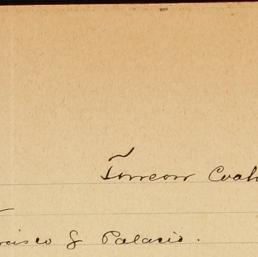 Torreon Coah
ncisco G Palacio.